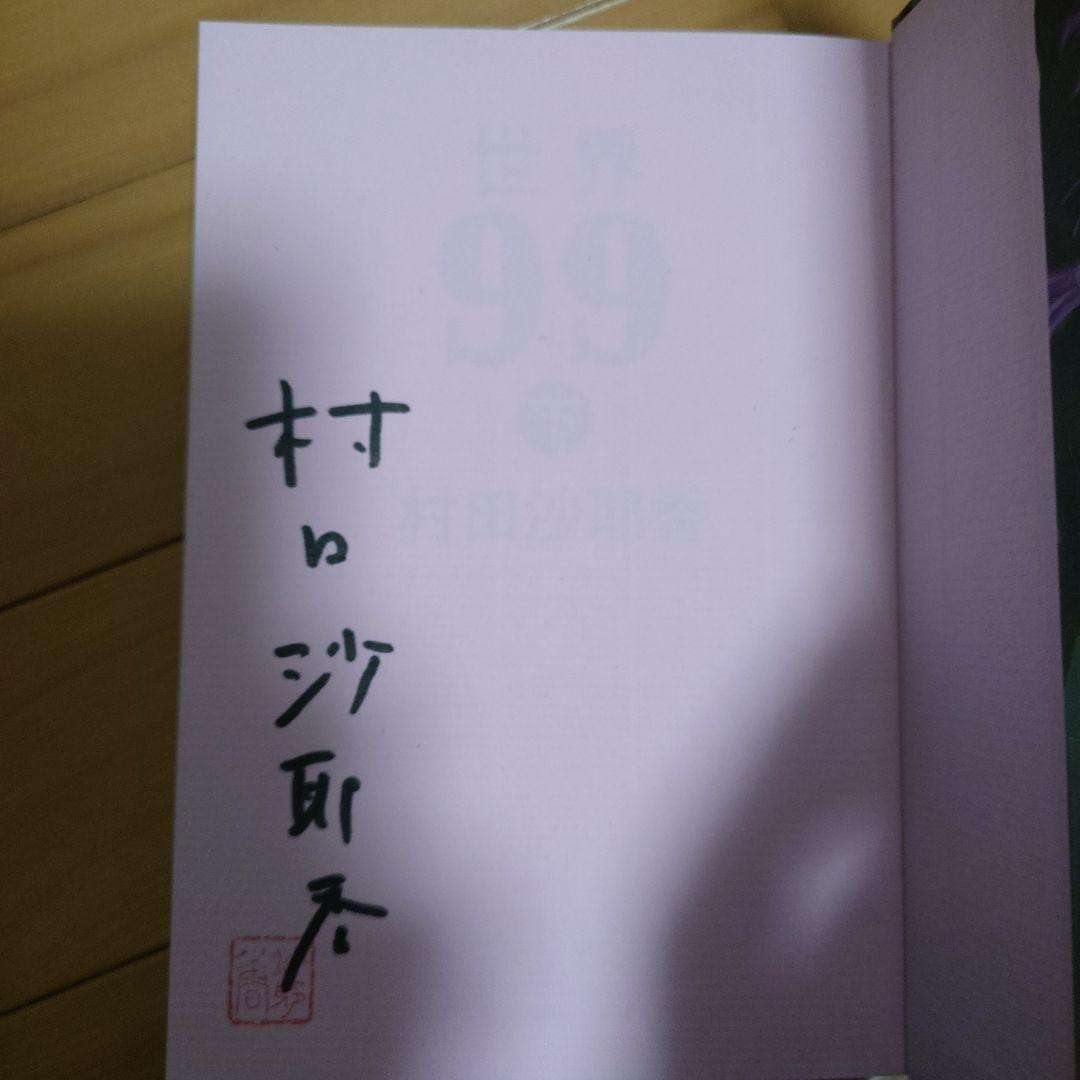 世界
99
下
村田沙耶香
村田沙耶香